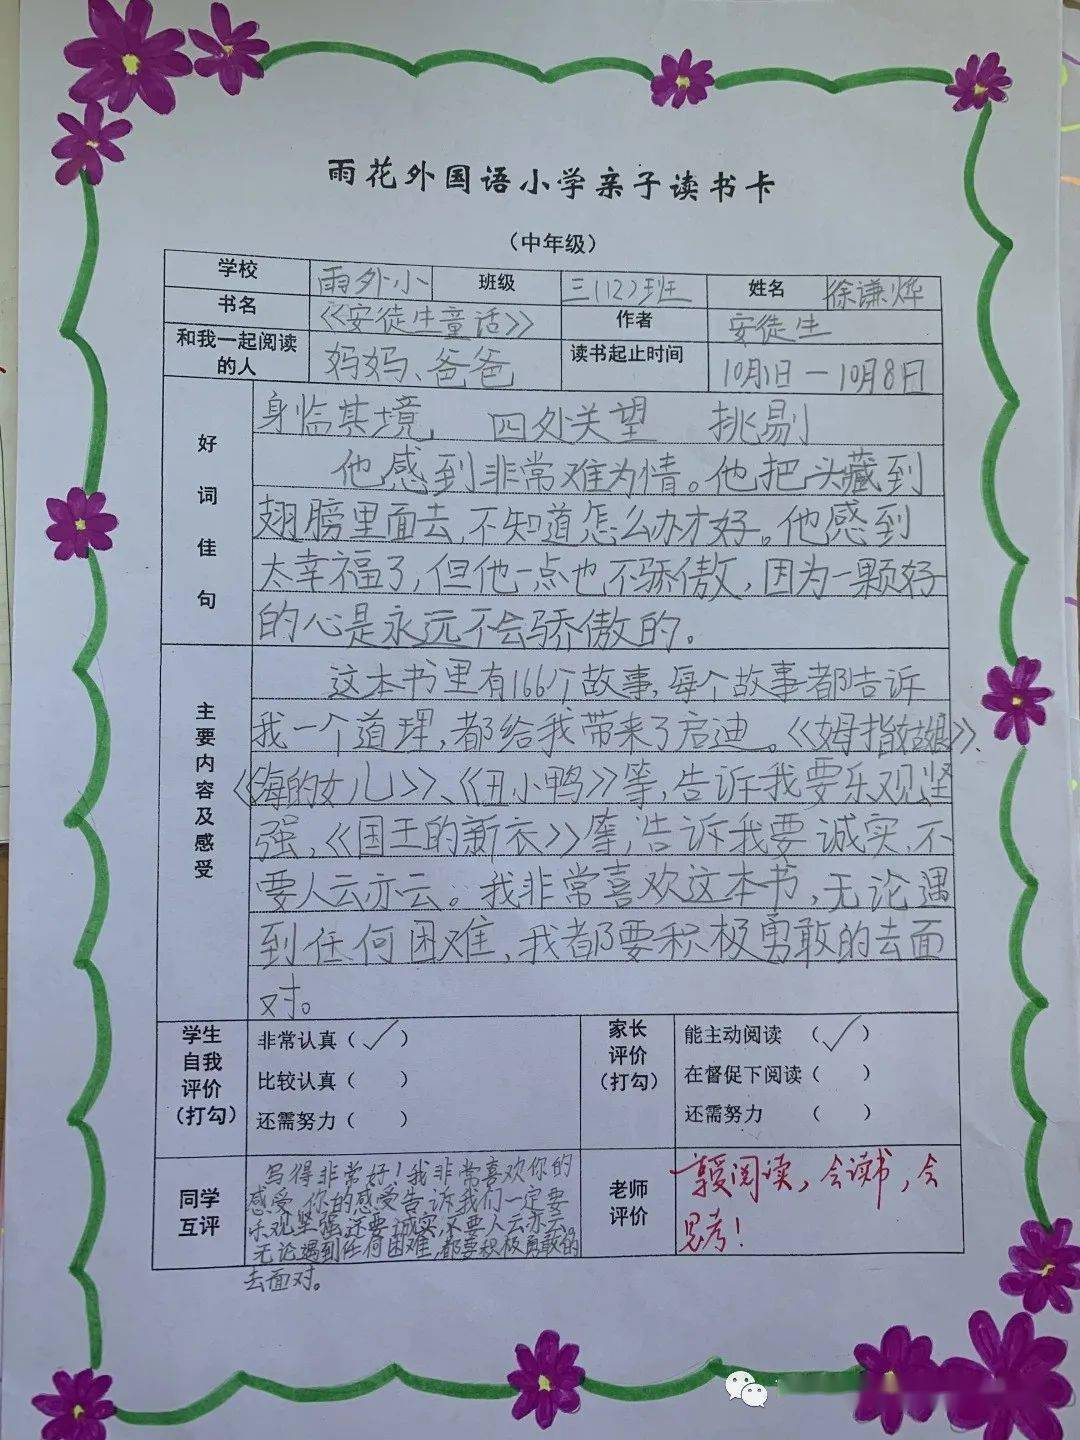 雨花外国语小学亲子读书卡
（中年级）
学校 雨外小 班级 三（12）班 姓名 徐谦烨
书名 《安徒生童话》 作者 安徒生
和我一起阅读的人 妈妈、爸爸 读书起止时间 10月1日—10月8日
好词佳句
身临其境, 四处关望 挑剔
他感到非常难为情。他把头藏到
翅膀里面去,不知道怎么办才好。他感到
太幸福了,但他一点也不骄傲,因为一颗好
的心是永远不会骄傲的。
主要内容及感受
这本书里有166个故事,每个故事都告诉
我一个道理,都给我带来了启迪。《姆指姑娘》、
《海的女儿》、《丑小鸭》等,告诉我要乐观坚
强,《国王的新衣》等,告诉我要诚实,不
要人云亦云。我非常喜欢这本书,无论遇
到任何困难,我都要积极勇敢的去面
对。
学生自我评价（打勾）
非常认真（✓）
比较认真（ ）
还需努力（ ）
家长评价（打勾）
能主动阅读（✓）
在督促下阅读（ ）
还需努力（ ）
同学互评
写得非常好!我非常喜欢你的
感受,你的感受告诉我们一定要
乐观坚强,还要诚实,不要人云亦云。
无论遇到任何困难,都要积极勇敢的
去面对。
老师评价
享受阅读,会读书,会
思考!